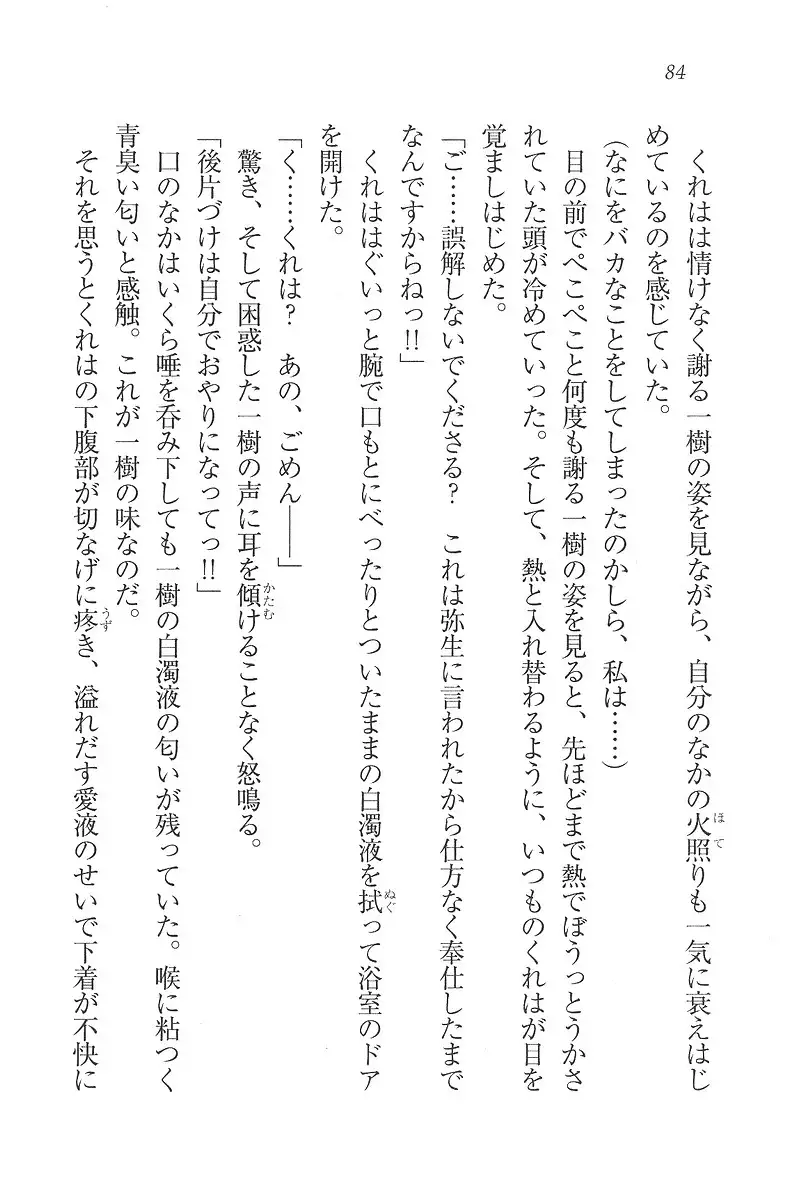 84
くれはは情けなく謝る一樹の姿を見ながら、自分のなかの火照りも一気に衰えはじ
めているのを感じていた。
(なにをバカなことをしてしまったのかしら、私は……)
目の前でぺこぺこと何度も謝る一樹の姿を見ると、先ほどまで熱でぼうっとうかさ
れていた頭が冷めていった。そして、熱と入れ替わるように、いつものくれはが目を
覚ましはじめた。
「ご……誤解しないでくださる?　これは弥生に言われたから仕方なく奉仕したまで
なんですからねっ!!」
くれははぐいっと腕で口もとにべったりとついたままの白濁液を拭って浴室のドア
を開けた。
「く……くれは?　あの、ごめん――」
驚き、そして困惑した一樹の声に耳を傾けることなく怒鳴る。
「後片づけは自分でおやりになってっ!!」
口のなかはいくら唾を呑み下しても一樹の白濁液の匂いが残っていた。喉に粘つく
青臭い匂いと感触。これが一樹の味なのだ。
それを思うとくれはの下腹部が切なげに疼き、溢れだす愛液のせいで下着が不快に